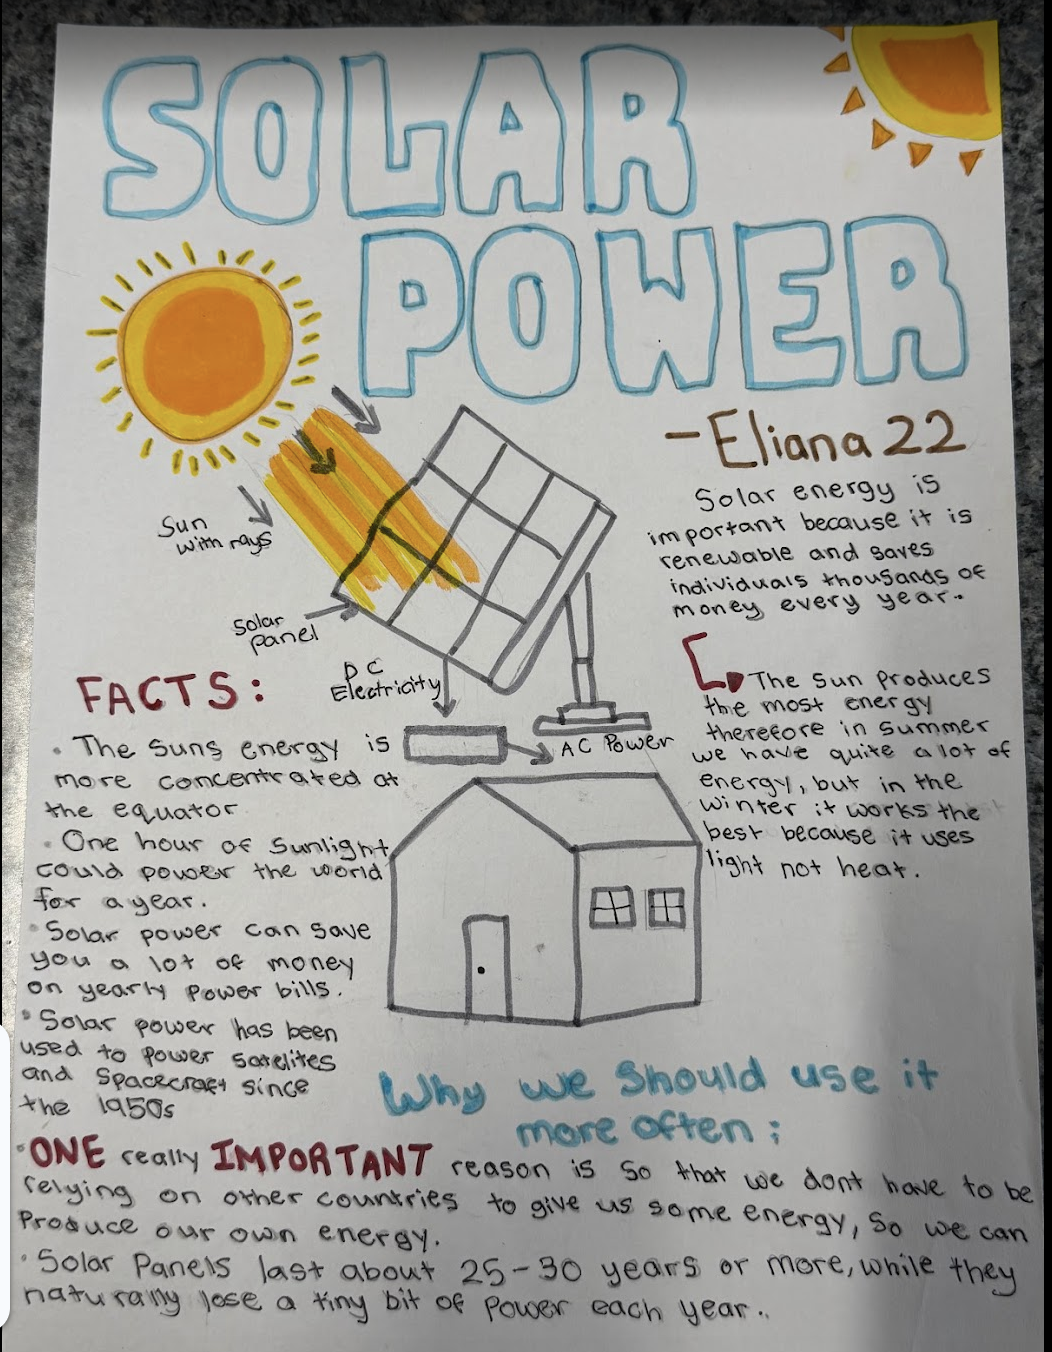 SOLAR
POWER
-Eliana 22
Solar energy is
important because it is
renewable and saves
individuals thousands of
money every year.
Sun
with rays
Solar
panel
DC
Electricity
AC Power
The Sun produces
the most energy
therefore in summer
we have quite a lot of
energy, but in the
winter it works the
best because it uses
light not heat.
FACTS:
• The Suns energy is
more concentrated at
the equator
• One hour of Sunlight
could power the world
for a year.
• Solar power can save
you a lot of money
on yearly power bills.
• Solar power has been
used to power Satelites
and Spacecraft since
the 1950s
Why we should use it
more often:
• ONE really IMPORTANT reason is so that we dont have to be
relying on other countries to give us some energy, So we can
Produce our own energy.
• Solar Panels last about 25-30 years or more, while they
naturally lose a tiny bit of power each year..